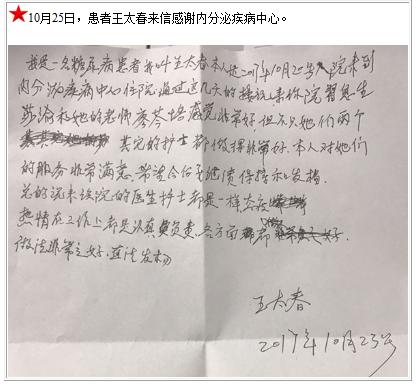 ★10月25日,患者王太春来信感谢内分泌疾病中心。
我是一名糖尿病患者我叫王太春本人是2017年10月20号入院来到
内分泌疾病中心住院,通过这几天的接触来你院习医生
莎渝和她的老师廖芩培感觉非常好但不只她们两个
其它的护士都做得非常好.本人对她们
的服务非常满意,希望今后继续保持和发扬
总的说来该院的医生护士都是一样态度
热情在工作上都是认真负责.各方面都
做法非常之好,值得发扬
王太春
2017年10月23号